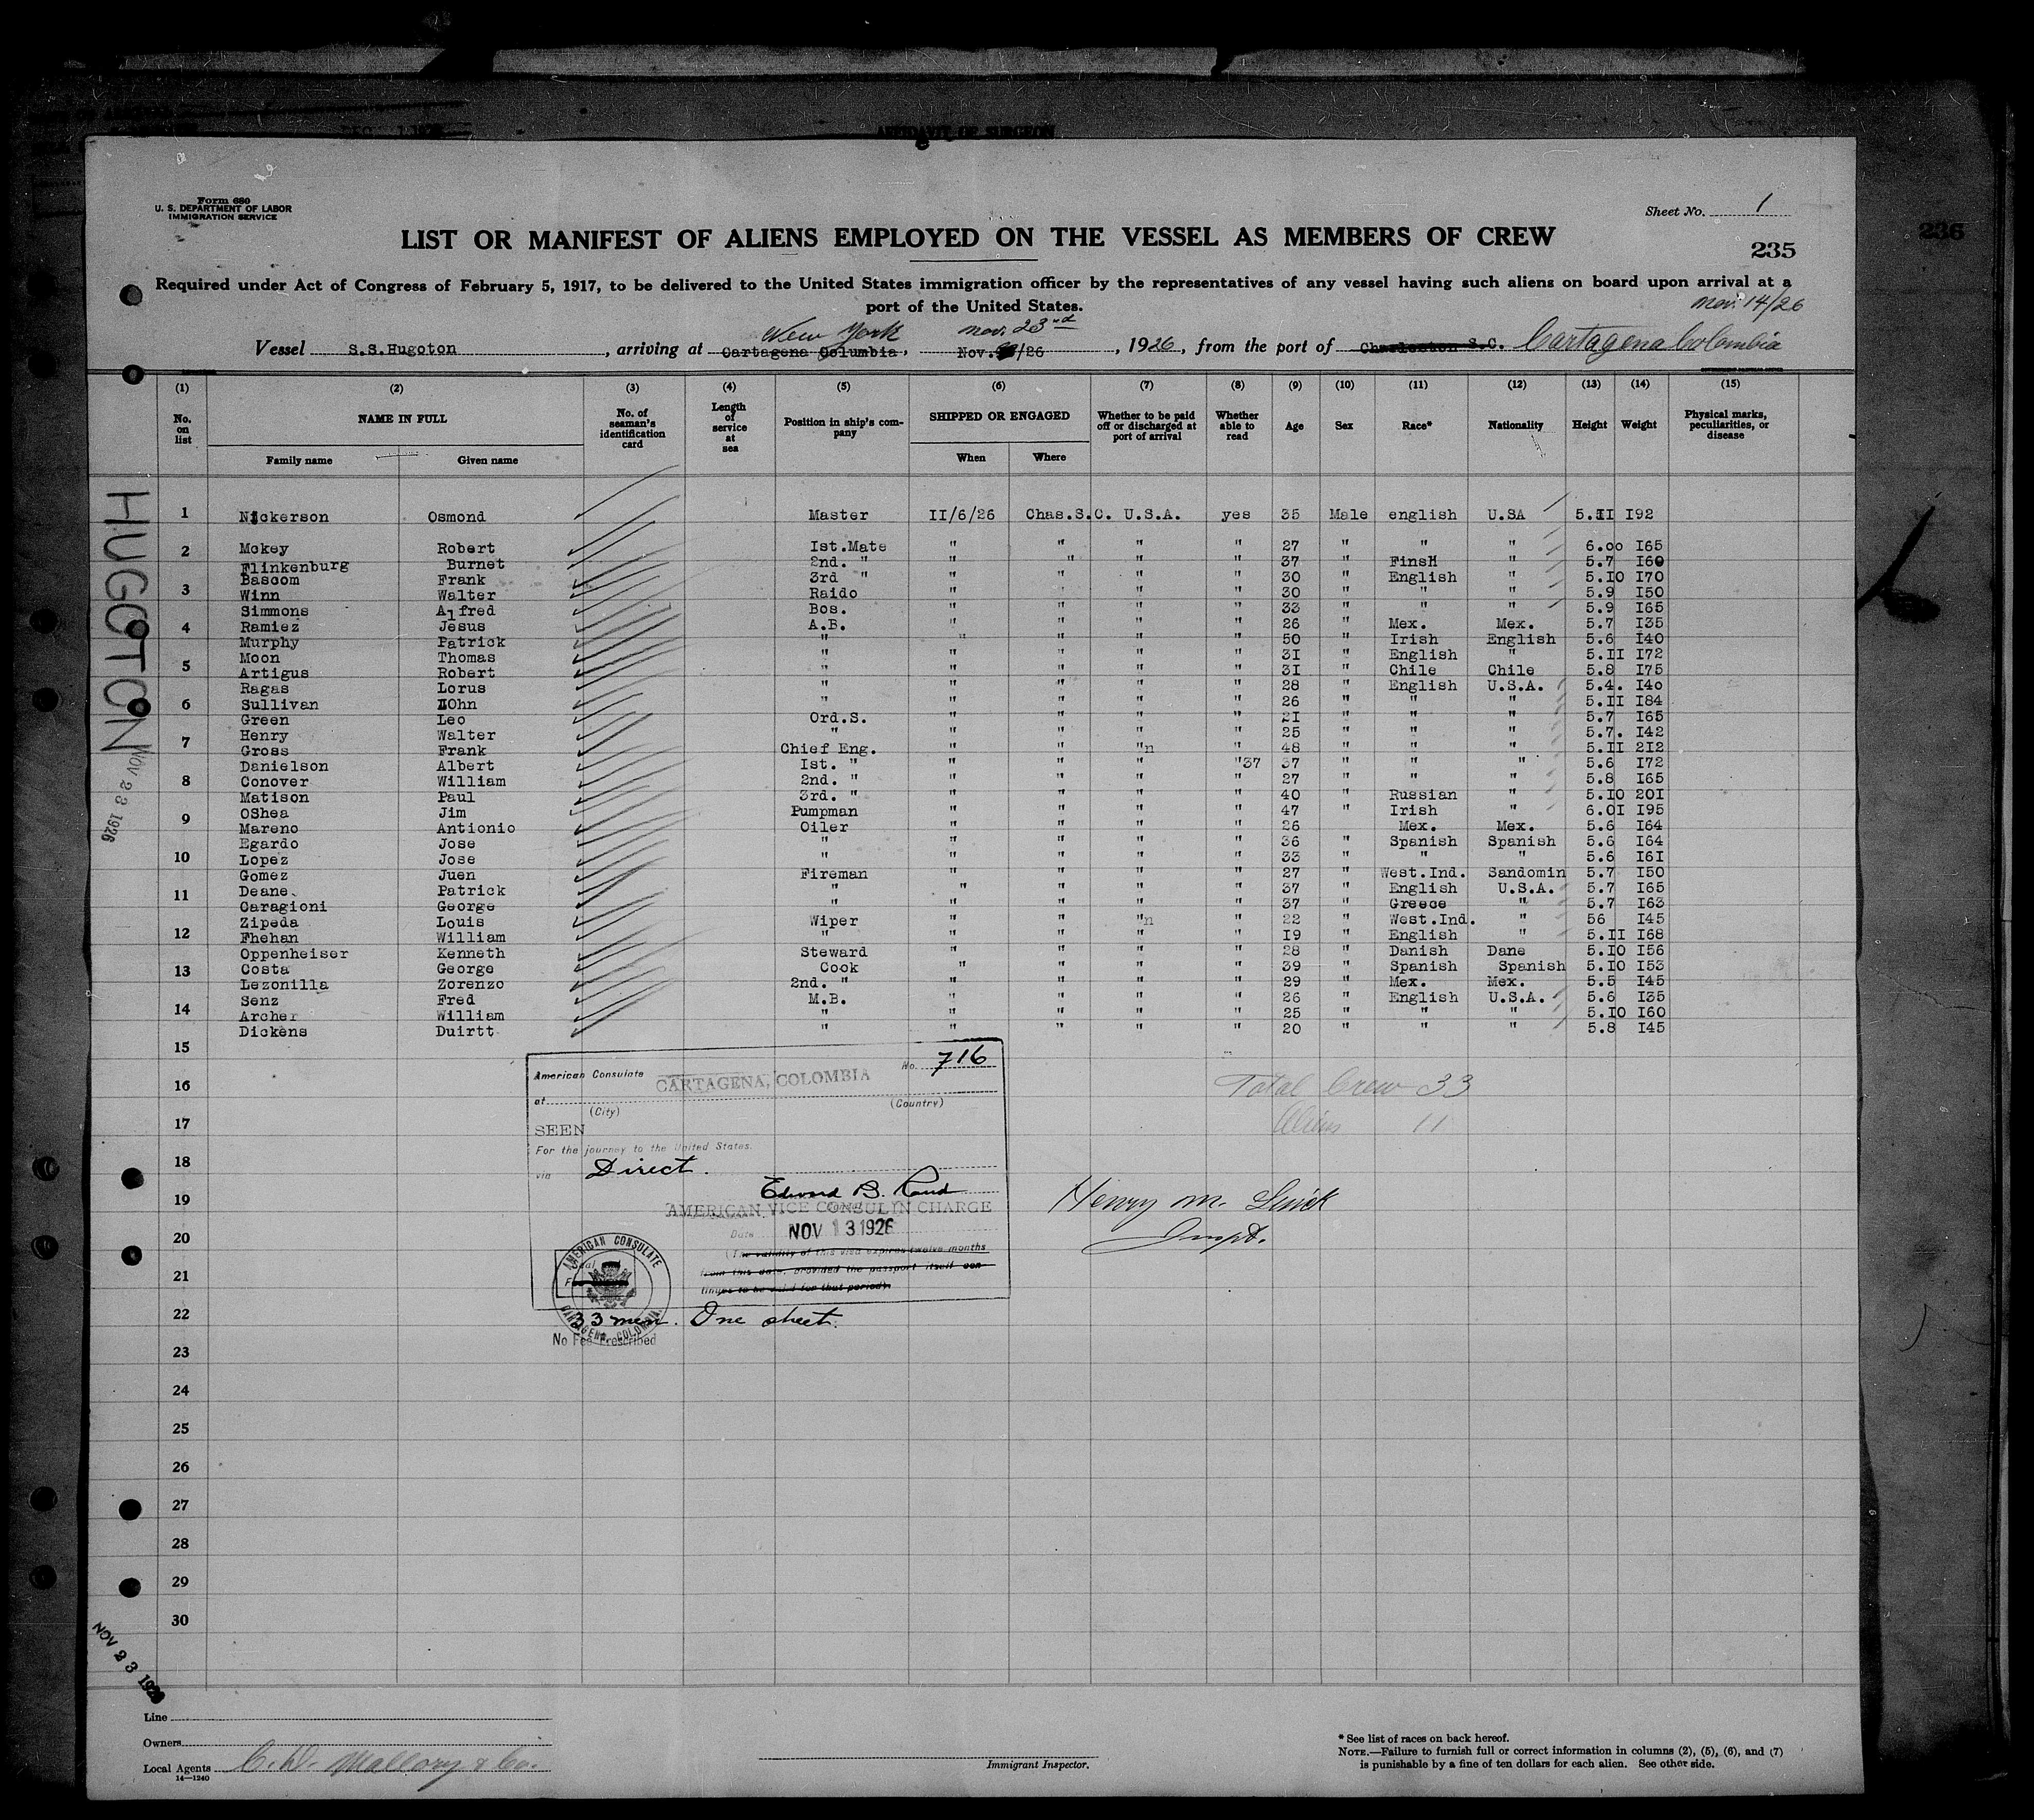 236
AFFIDAVIT OF SURGEON
Form 680
U. S. DEPARTMENT OF LABOR
IMMIGRATION SERVICE
Sheet No. 1
LIST OR MANIFEST OF ALIENS EMPLOYED ON THE VESSEL AS MEMBERS OF CREW
235
Required under Act of Congress of February 5, 1917, to be delivered to the United States immigration officer by the representatives of any vessel having such aliens on board upon arrival at a
port of the United States.
Nov. 14/26
New York Nov. 23rd
Vessel S.S.Hugoton, arriving at Cartagena Columbia, Nov. /26, 1926, from the port of Charleston S.C. Cartagena Colombia
(1) (2) (3) (4) (5) (6) (7) (8) (9) (10) (11) (12) (13) (14) (15)
No. on list NAME IN FULL No. of seaman's identification card Length of service at sea Position in ship's company SHIPPED OR ENGAGED Whether to be paid off or discharged at port of arrival Whether able to read Age Sex Race* Nationality Height Weight Physical marks, peculiarities, or disease
Family name Given name When Where
HUGOTON
NOV 23 1926
1 Nickerson Osmond Master II/6/26 Chas.S.C. U.S.A. yes 35 Male english U.SA 5.II I92
2 Mckey Robert Ist.Mate " " " " 27 " " " 6.00 I65
Flinkenburg Burnet 2nd. " " " " " 37 " FinsH " 5.7 I60
Bascom Frank 3rd " " " " " 30 " English " 5.IO I70
3 Winn Walter Raido " " " " 30 " " " 5.9 I50
Simmons Alfred Bos. " " " " 33 " " " 5.9 I65
4 Ramiez Jesus A.B. " " " " 26 " Mex. Mex. 5.7 I35
Murphy Patrick " " " " " 50 " Irish English 5.6 I40
Moon Thomas " " " " " 3I " English " 5.II I72
5 Artigus Robert " " " " " 3I " Chile Chile 5.8 I75
Ragas Lorus " " " " " 28 " English U.S.A. 5.4. I4o
6 Sullivan JOhn " " " " " 26 " " " 5.II I84
Green Leo Ord.S. " " " " 2I " " " 5.7 I65
7 Henry Walter " " " " " 25 " " " 5.7. I42
Gross Frank Chief Eng. " " "n " 48 " " " 5.II 2I2
Danielson Albert Ist. " " " " "37 37 " " " 5.6 I72
8 Conover William 2nd. " " " " " 27 " " " 5.8 I65
Matison Paul 3rd. " " " " " 40 " Russian " 5.IO 20I
9 OShea Jim Pumpman " " " " 47 " Irish " 6.OI I95
Mareno Antionio Oiler " " " " 26 " Mex. Mex. 5.6 I64
Egardo Jose " " " " " 36 " Spanish Spanish 5.6 I64
10 Lopez Jose " " " " " 33 " " " 5.6 I6I
Gomez Juen Fireman " " " " 27 " West.Ind. Sandomin 5.7 I50
11 Deane Patrick " " " " " 37 " English U.S.A. 5.7 I65
Caragioni George " " " " " 37 " Greece " 5.7 I63
Zipeda Louis Wiper " " "n " 22 " West.Ind. " 56 I45
12 Fhehan William " " " " " I9 " English " 5.II I68
Oppenheiser Kenneth Steward " " " " 28 " Danish Dane 5.IO I56
13 Costa George Cook " " " " 39 " Spanish Spanish 5.IO I53
Lezonilla Zorenzo 2nd. " " " " " 29 " Mex. Mex. 5.5 I45
Senz Fred M.B. " " " " 26 " English U.S.A. 5.6 I35
14 Archer William " " " " " 25 " " " 5.IO I60
Dickens Duirtt " " " " " 20 " " " 5.8 I45
15
16
17
18
19
20
21
22
23
24
25
26
27
28
29
30
No. 716
American Consulate CARTAGENA, COLOMBIA
at
(City) (Country)
SEEN
For the journey to the United States.
via Direct.
Edward B. Rand
AMERICAN VICE CONSUL IN CHARGE
Date NOV 13 1926
(The validity of this visa expires twelve months
from this date, provided the passport itself con-
tinues to be valid for that period).
AMERICAN CONSULATE
CARTAGENA, COLOMBIA
33 men. One sheet.
No Fee Prescribed
Total Crew 33
Aliens 11
Henry M.
Inspt.
NOV 23 1926
Line
Owners
Local Agents C. D. Mallory & Co.
14—1240
Immigrant Inspector.
* See list of races on back hereof.
NOTE.—Failure to furnish full or correct information in columns (2), (5), (6), and (7)
is punishable by a fine of ten dollars for each alien. See other side.